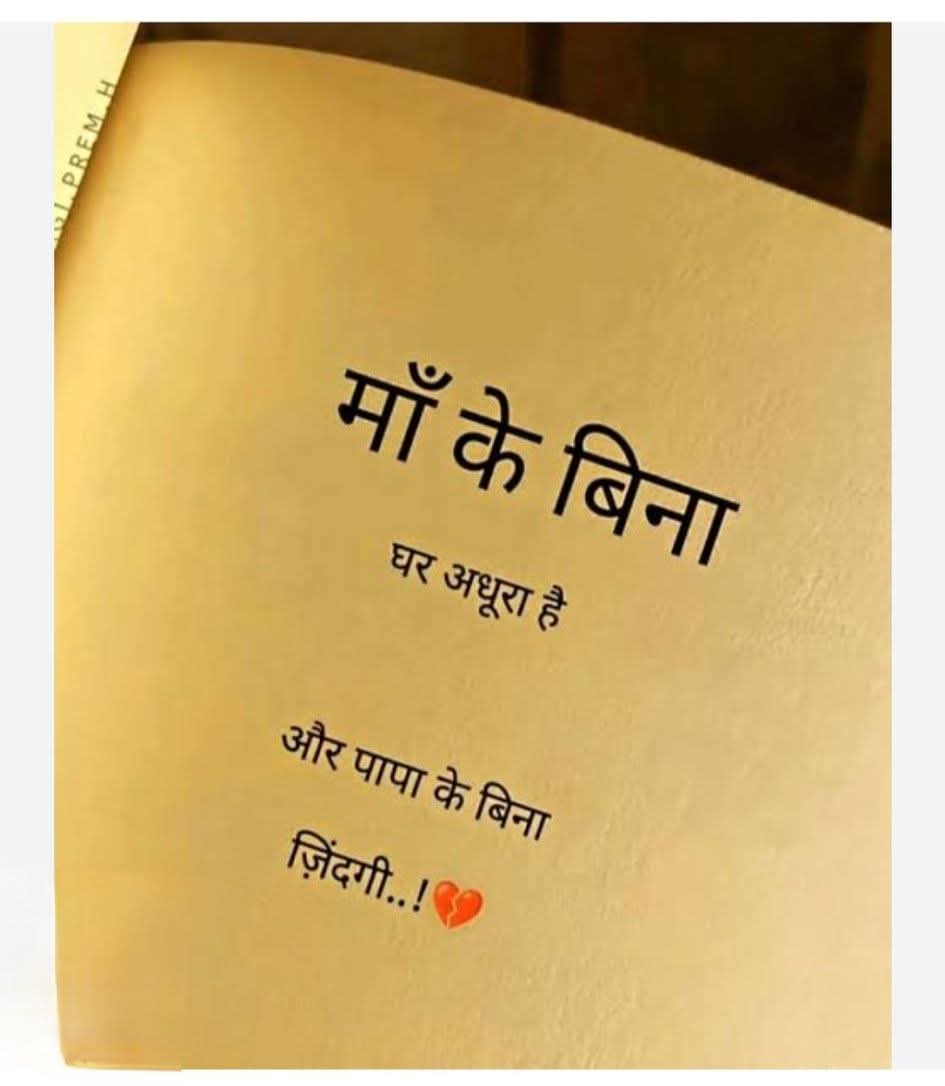 GI PREM H
माँ के बिना
घर अधूरा है
और पापा के बिना
ज़िंदगी..!💔